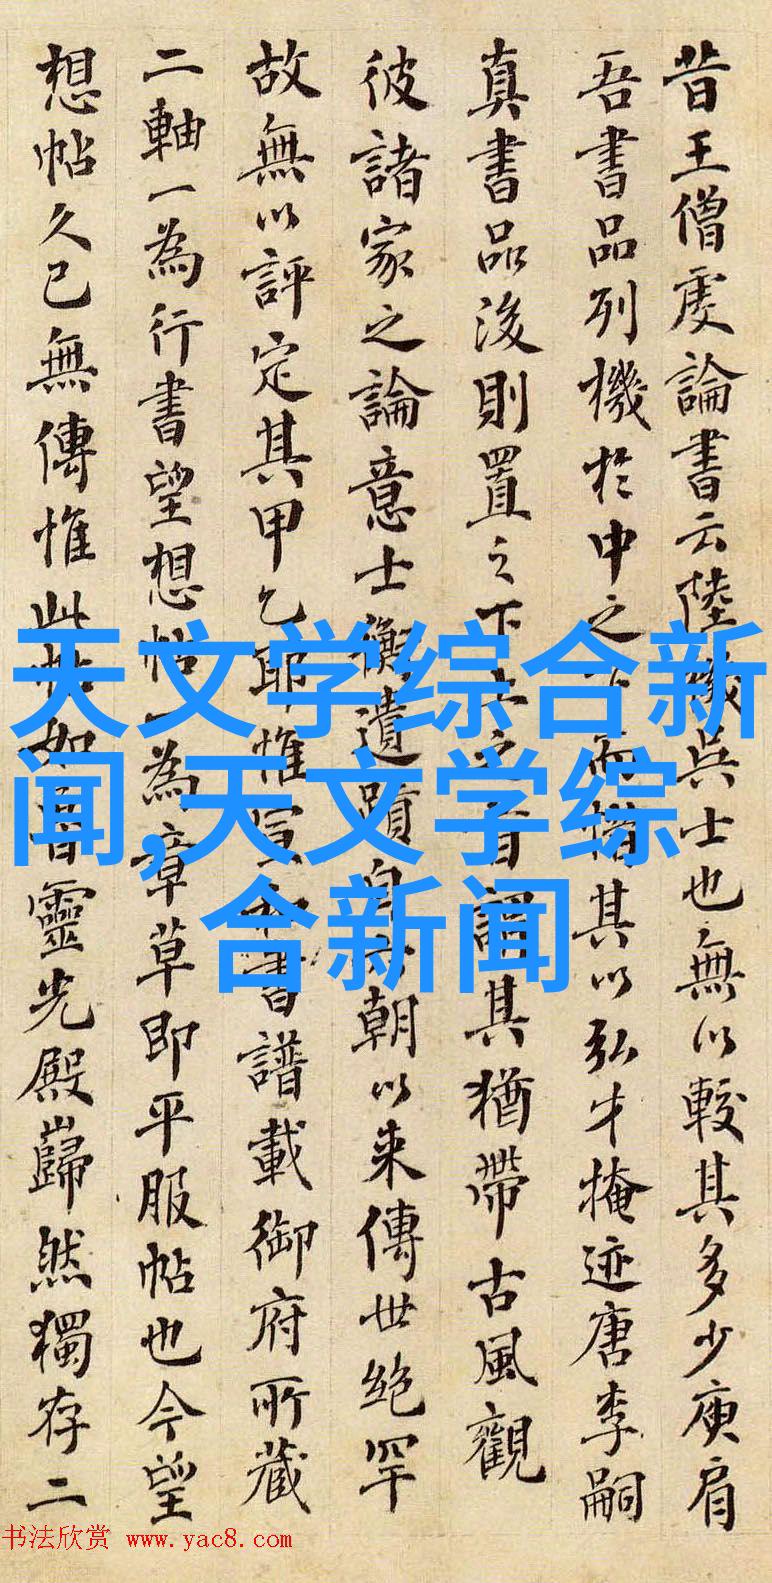 昔王僧虔論書云陸機吳士也無以較其多少庾肩
吾書品列機於中之而惜其以弘才掩迹唐李嗣
真書品後則置之下上之謂其猶帶古風觀
彼諸家之論意士衡遺蹟自朝以来傳世絶罕
故無以評定其甲乙耶惟宣和書譜載御府所藏
二軸一為行書望想帖一為章草即平服帖也今望
想帖久已無傳惟此帖如魯靈光殿巋然獨存二
天文学综合新
闻,天文学综
合新闻
书法欣赏 www.yac8.com